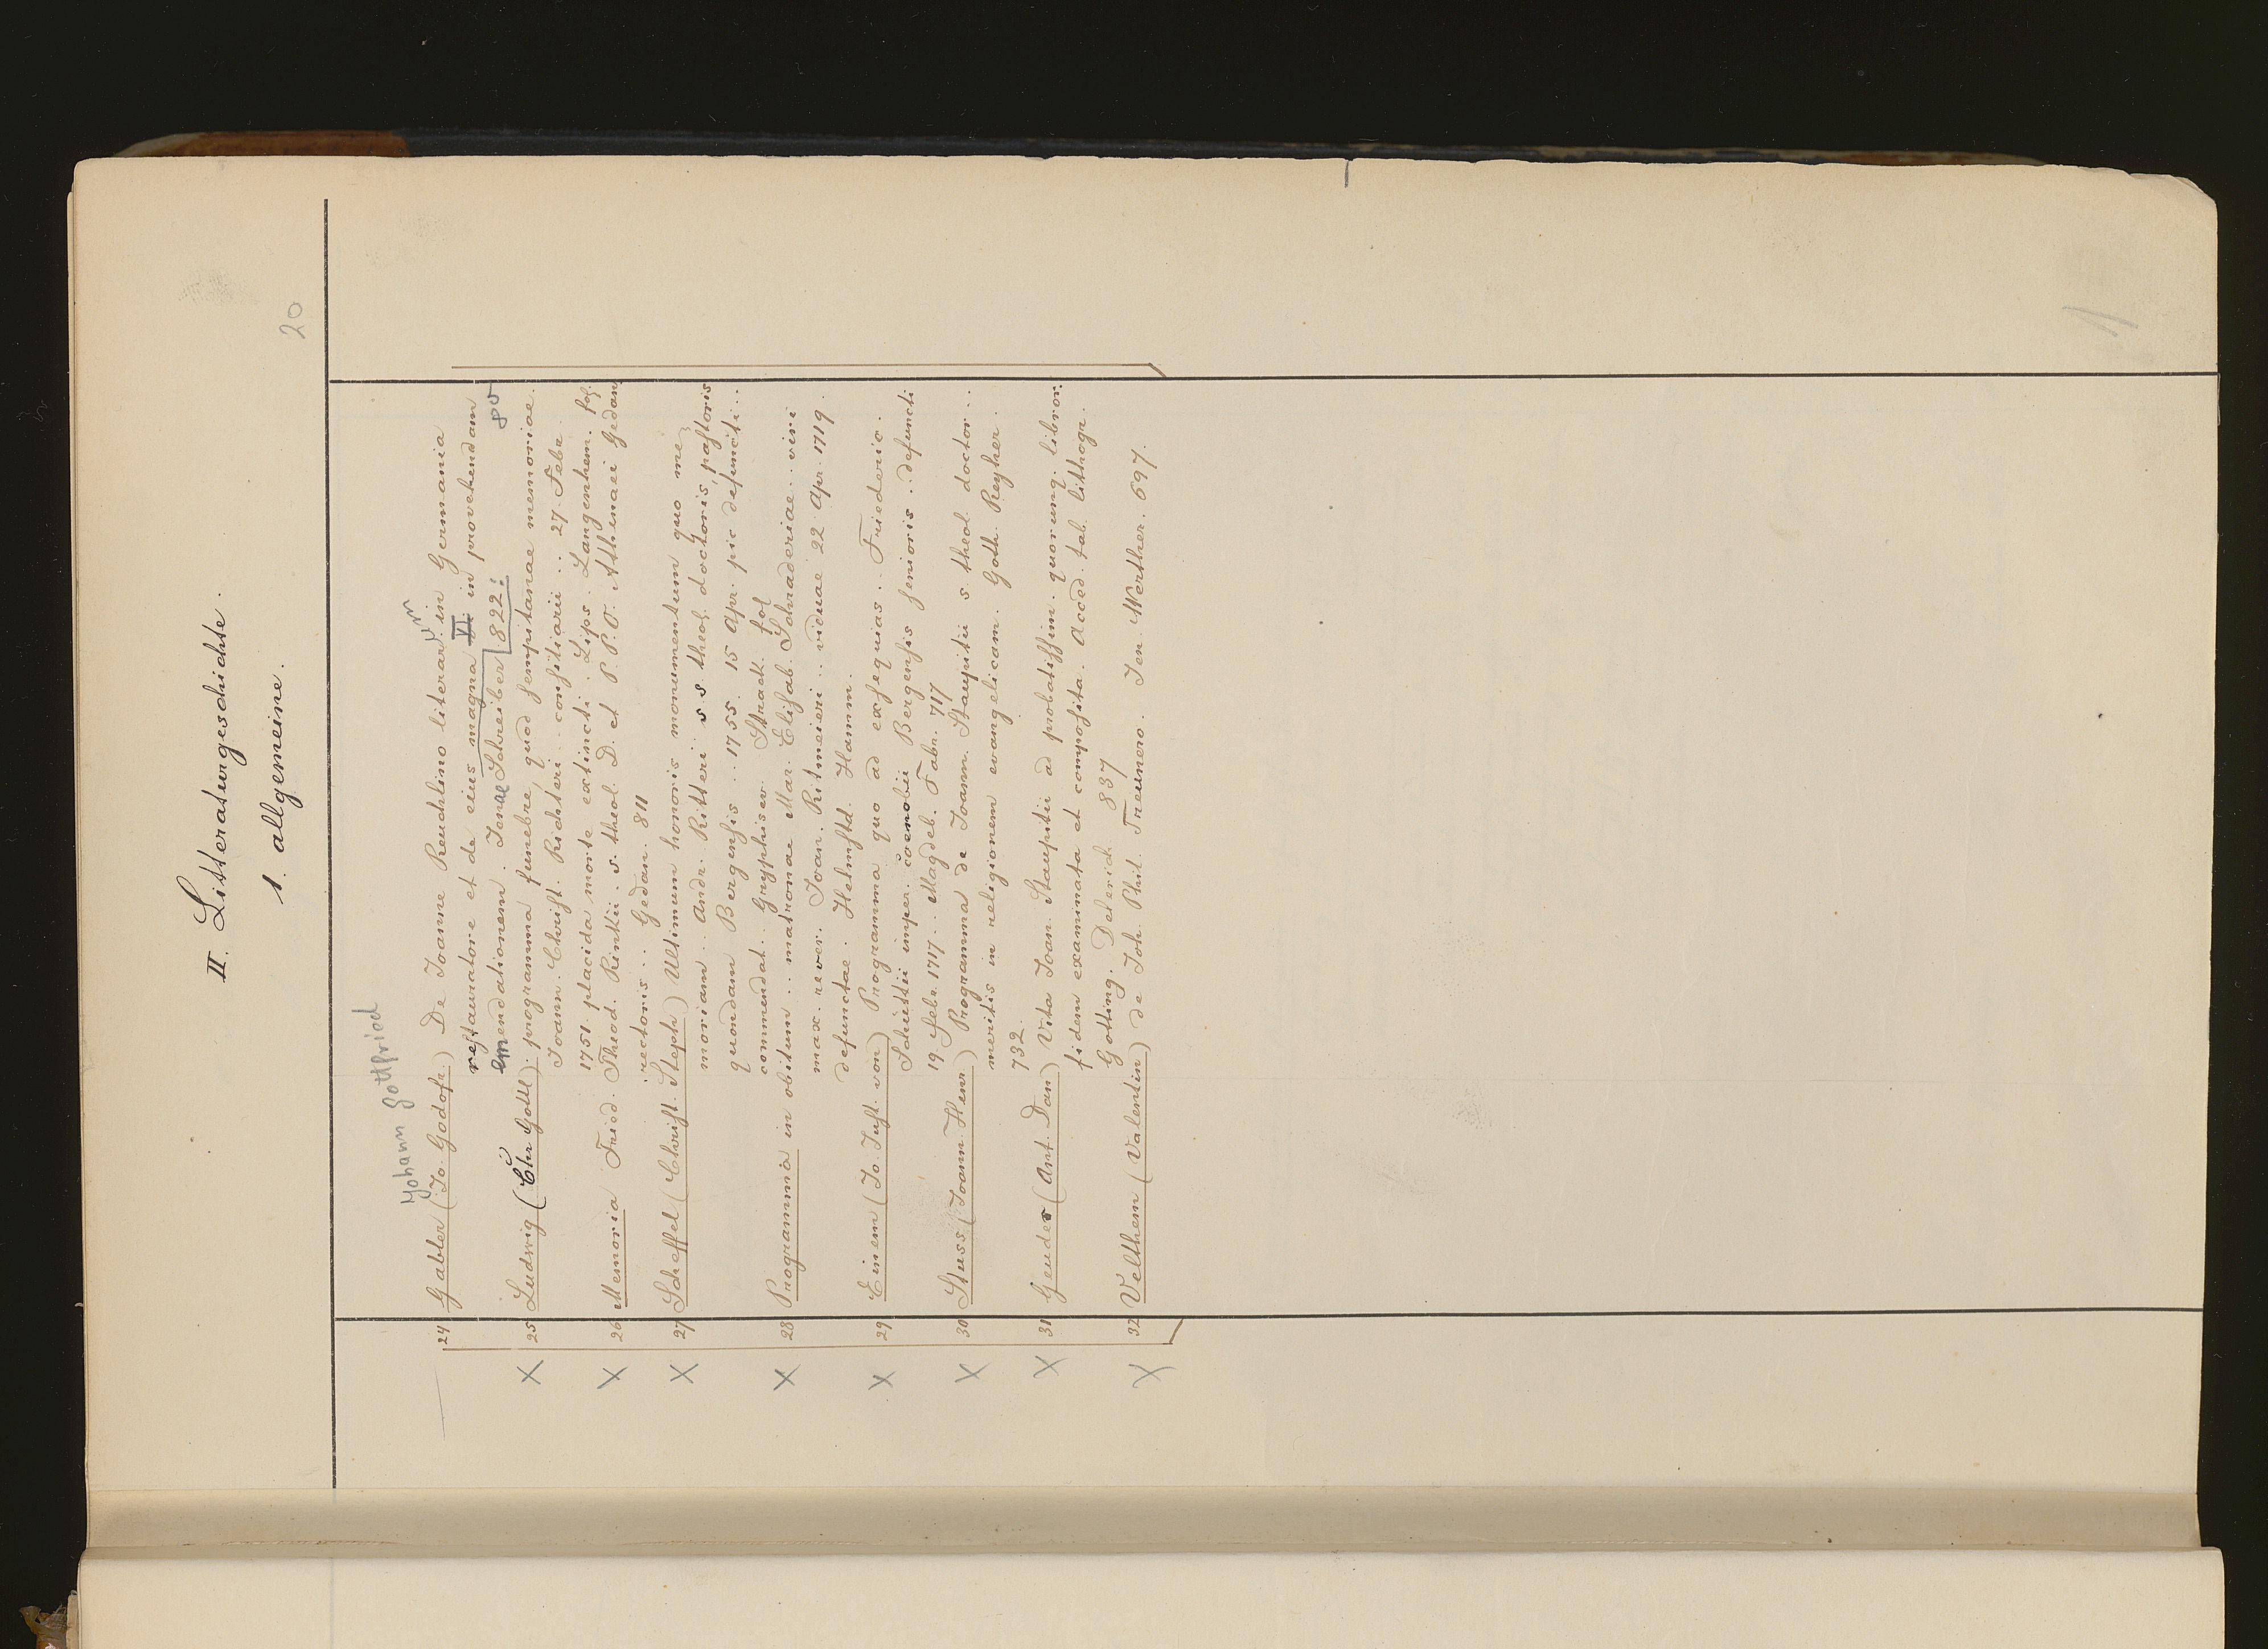 II. Litteraturgeschichte.
1. allgemeine.
20
Johann Gottfried
24 Gabler (Jo. Godofr.) De Joanne Reuchlino literarum in Germania
restauratore et de eius magna VI in provehendam
emendationem. Jenae Schreiber 822:
X 25 Ludwig (Chr Gottl) programma funebre, quod sempitanae memoriae
Joann. Christ. Richteri .. consitiarii .. 27. Febr.
1751. placida morte extincti. Lips. Langenhem. fol.
X 26 Memoria Fried. Theod. Rinkii. s. theol. D. et P. P. O. Athenaei Gedan
rectoris ... Gedan. 811
X 27 Scheffel (Christ. Steph) Ultimum honoris monumentum quo me
moriam .. Andr. Ritteri s s. theol. doctoris, pastoris
quondam Bergensis .. 1755. 15 Apr. pie defuncti ..
commendat .. Gryphisw. Struck. fol
X 28 Programma in obitum .. matronae Mar. Elisab. Schraderiae .. viri
max. rever. Joan. Ritmeieri .. viduae 22 Apr. 1719.
defunctae. Helmstd. Hamm.
X 29 Einem (Jo. Just. von) Programma quo ad exsequias .. Friederic.
Schüttii imper. coenobii Bergensis senioris .. defuncti
19. Febr. 1717 .. Magdeb. Fabr. 717
X 30 Stuss (Joann Henr) Programma de Joann. Staupitii s theol. doctor ..
meritis in religionem evangelicam. Goth. Reyher.
732.
X 31 Geuder (Ant. Dan) Vita Joan. Staupitii ad probatissim. quorunq. libror.
fidem examinata et composita. Acced. tab. lithogr.
Gotting. Deterich 837
X 32 Velthem (Valentin) de Joh. Phil. Treunero. Jen. Werther. 697.